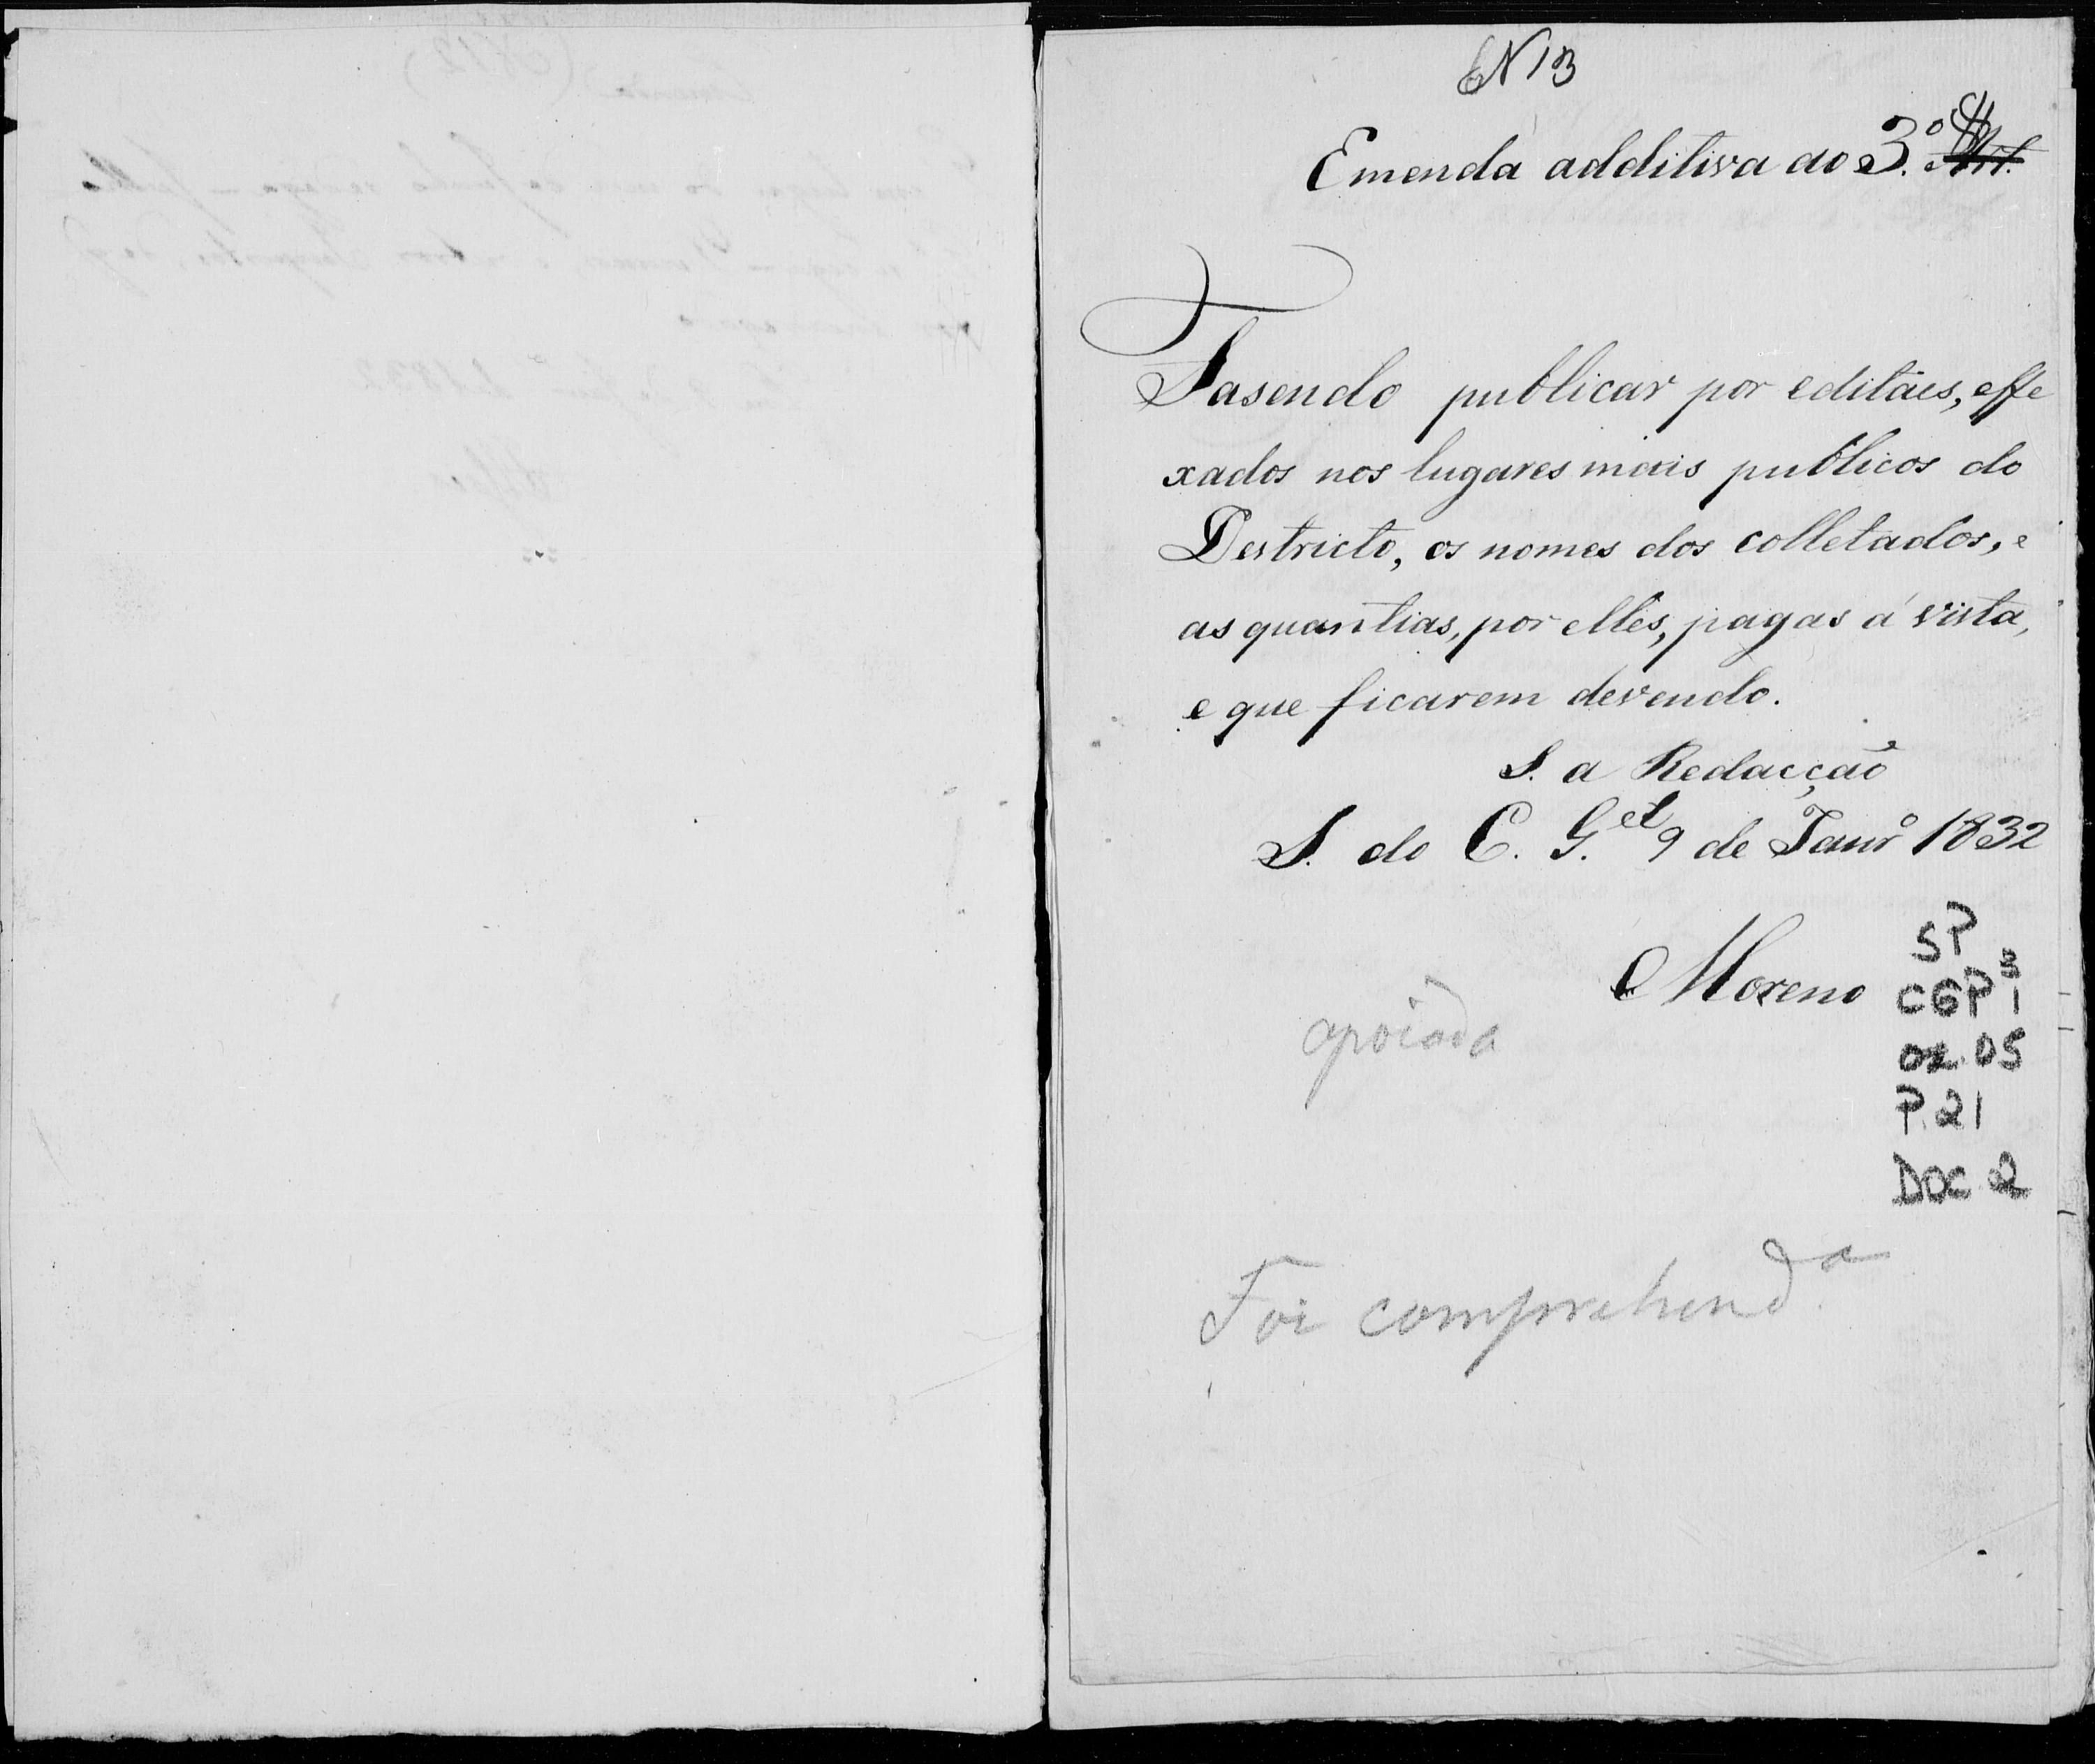 N 13
Emenda additiva ao 3.º § Art.
Fasendo publicar por editáes, effe
xados nos lugares mais publicos do
Destricto, os nomes dos colletados, e
as quantias, por elles, pagas á vista,
e que ficarem devendo.
S. a Redacção
S. do C. G.el 9 de Janrº 1832
Moreno
apoiada
SP
CGP 3
1
02.05
P.21
DOC 2
Foi comprehend.a